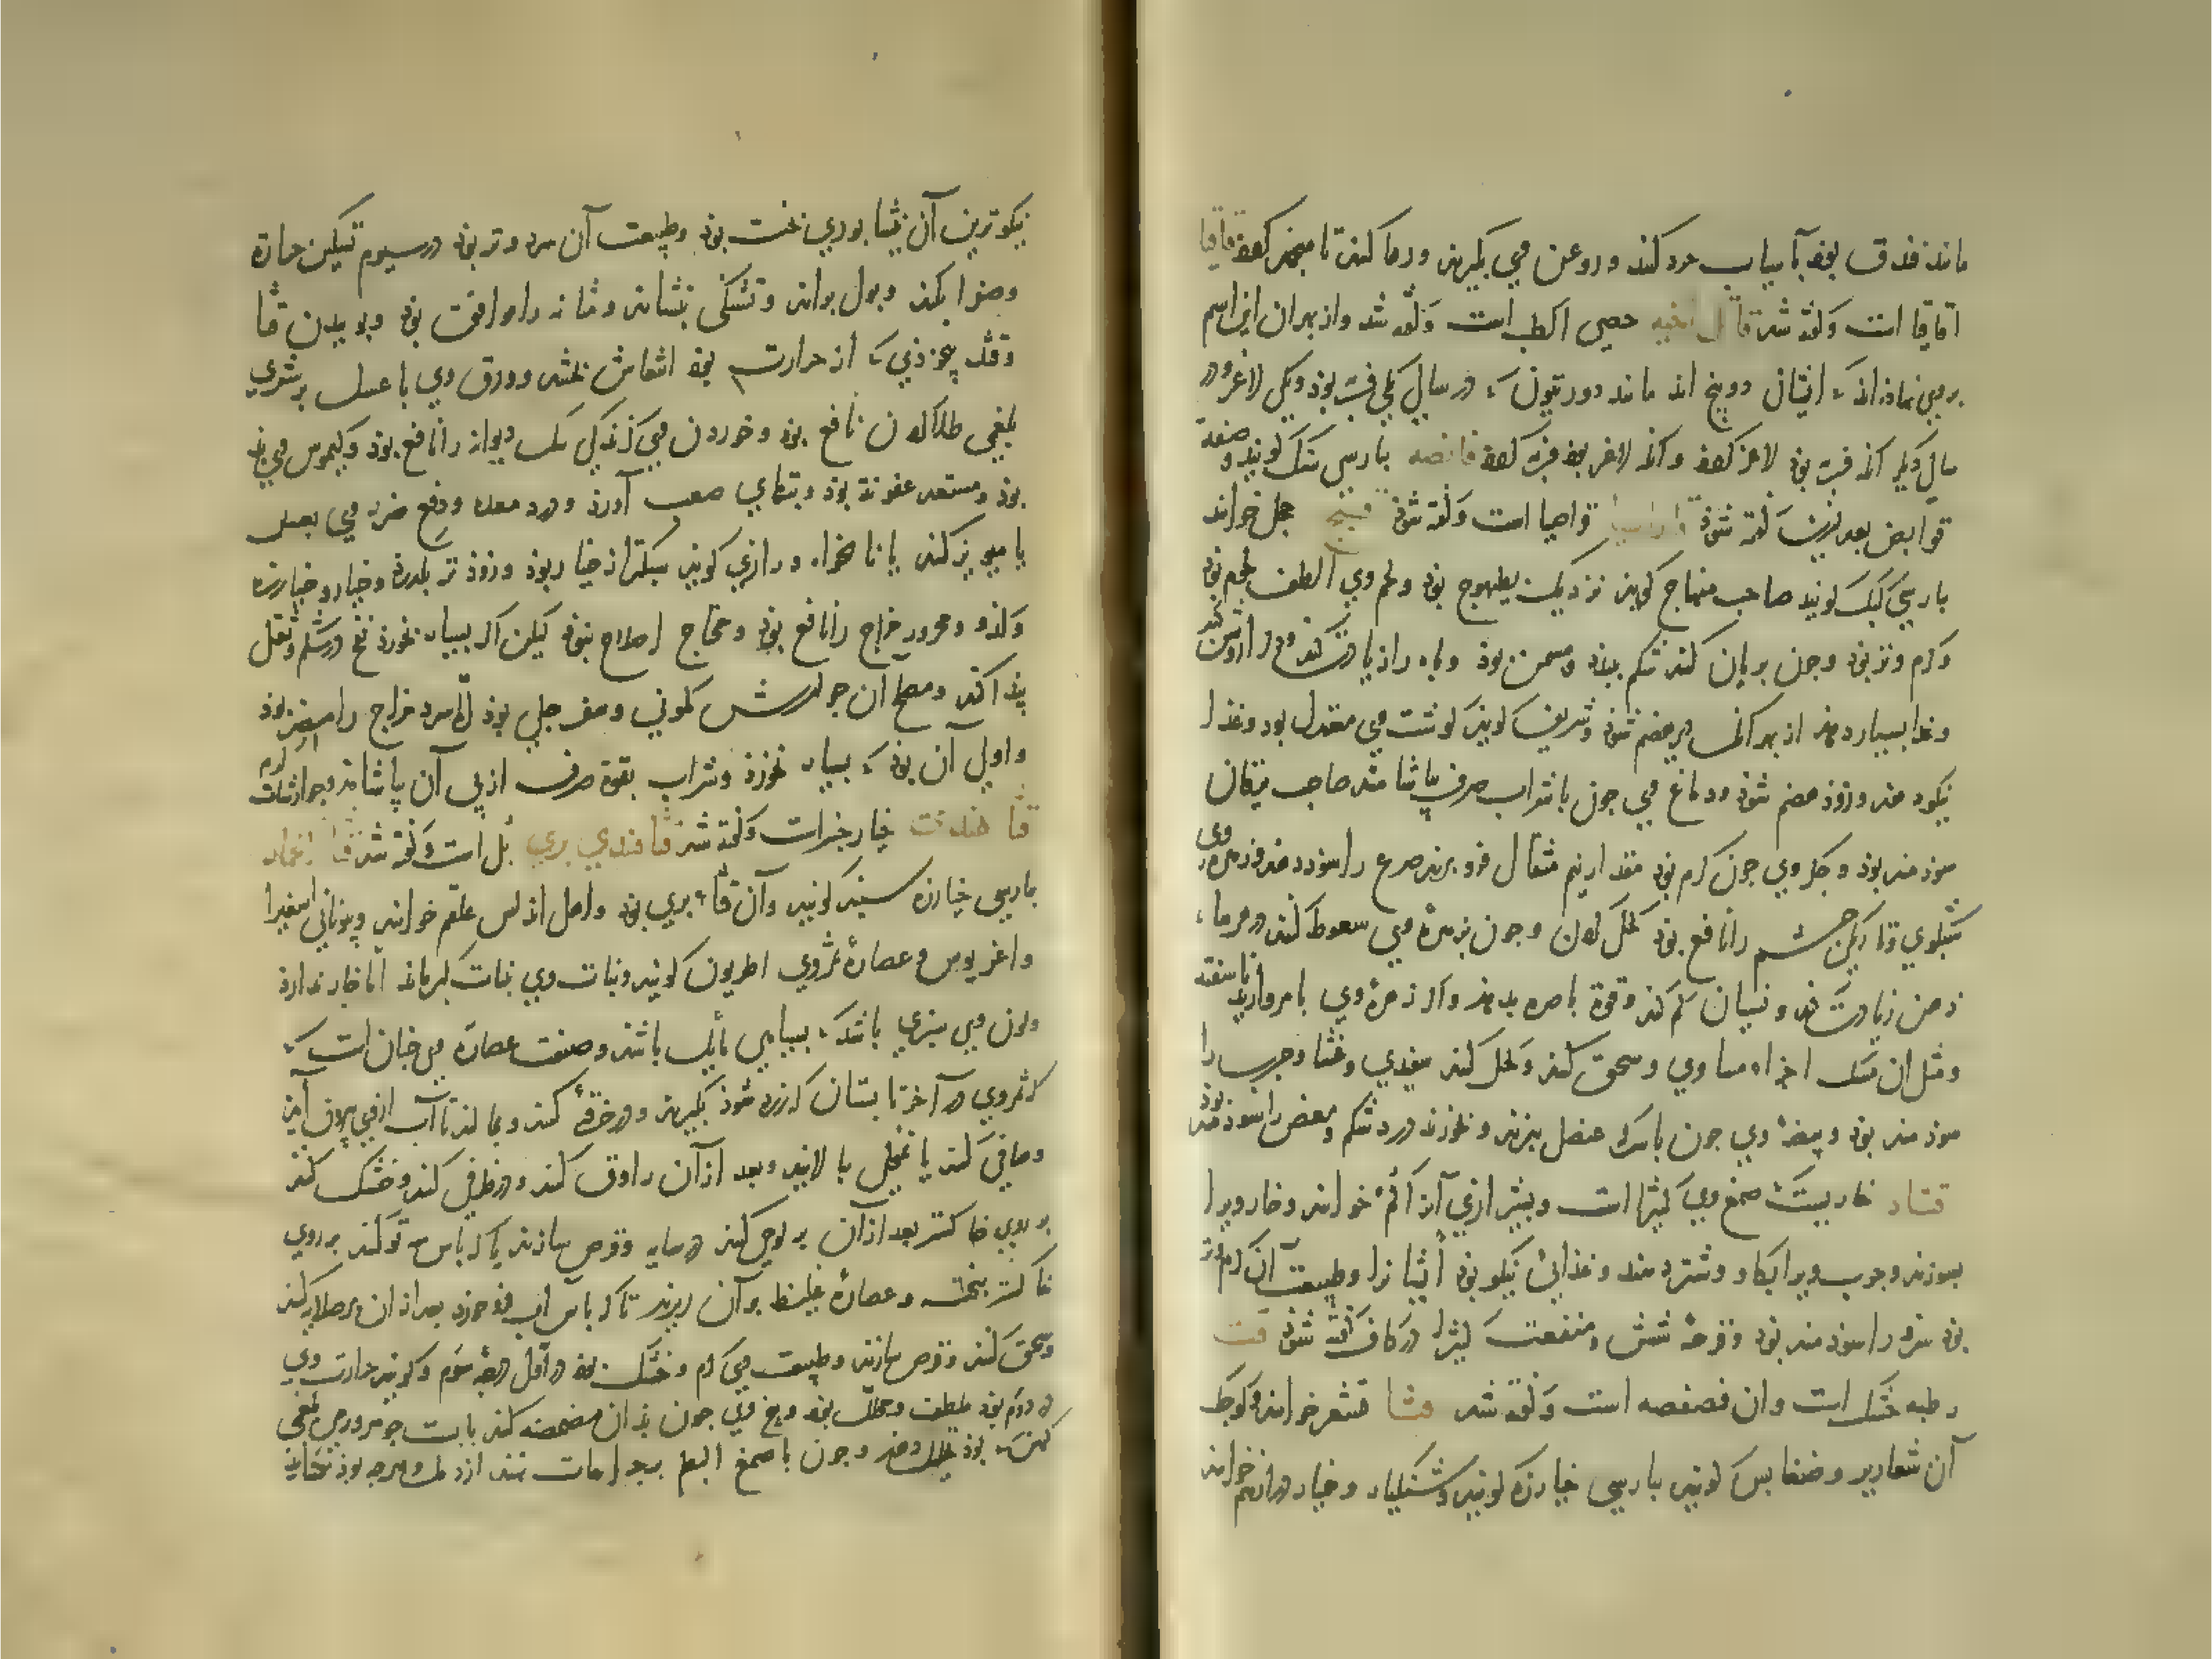 مانند فندق بود بآسیاب خرد کنند و روغن می گیرند و رها کنند تا منجمد گردد قاقیا
اقاقیا است و گفته شد قاتل اخیه خصی الکلب است و گفته شد و از بهر آن این اسم
بر وی نهاده اند که ایشان دو بیخ اند مانند دو زیتون که در سال یکی فربه بود و یکی لاغر و در
سال دیگر آنکه فربه بود لاغر گردد و آنکه لاغر بود فربه گردد قانصه بپارسی سنگ گویند و صفت
قوابض بعد ازین گفته شود قاراسیا قراصیا است و گفته شود قبج حجل خوانند
بپارسی کبک گویند صاحب منهاج گوید نزدیک بطیهوج بود و لحم وی الطف لحم بود
و گرم و تر بود و چون بریان کنند شکم ببندد و مسمن بود و باه را زیادت کند
و غذا بسیار دهد از بهر آنکه دیر هضم شود و شریف گوید گوشت وی معتدل بود و غذا
نیکو دهد و زود هضم شود و دماغ وی چون با شراب صرف بیاشامند صاحب یرقان
سودمند بود و جگر وی چون گرم بود مقدار نیم مثقال فرو برند صرع را سود دهد و زهره وی
شبکوری و تاریکی چشم را نافع بود کحل کردن و چون بزهره وی سعوط کنند در هر ماه
ذهن زیادت کند و نسیان کم کند و قوة باصره بدهد و اگر زهره وی با مروارید ناسفته
و مثل آن مشک اجزاء مساوی و سحق کنند و کحل کنند سفیدی و غشا و جرب را
سودمند بود و بیضه وی چون با سرکه عنصل بپزند و بخورند درد شکم و مغص را سودمند بود
قتاد خاریست صمغ وی کثیرا است و بشیرازی آنرا کُم خوانند و خار ویرا
بسوزند و چوب ویرا بگاو و شتر دهند و غذایی نیکو بود ایشانرا و طبیعت آن گرم و تر
بود سرفه را سودمند بود و قرحه شش و منفعت کثیرا در کاف گفته شود قت
رطبه خشک است و آن فصفصه است و گفته شد قثا قشعر خوانند و کوچک
آن شعاریر و ضغابیس گویند بپارسی خیارزه گویند و شنگیار و خیار دراز هم خوانند
نیکوترین آن نیشابوری نخت بود و طبیعت آن سرد و تر بود در سیوم تسکین حرارة
و صفرا بکند و بول براند و تشنگی بنشاند و مثانه را موافق بود و بوییدن قثا
و قثد بیخودی که از حرارت بود انتعاش بخشد و ورق وی با عسل بر شری
بلغمی طلا کردن نافع بود و خوردن وی گزندگی سگ دیوانه را نافع بود و کیموس وی بد
بود و مستعد عفونت بود و تبهای صعب آورد و درد معده و دفع ضرر وی بعسل
یا مویز کنند یا نانخواه و رازی گوید سبکتر از خیار بود و زودتر بگذرد و خیار و خیارزه
و کدو محرور مزاج را نافع بود و محتاج اصلاح نبود لیکن اگر بسیار بخورد نفخ در شکم و ثقل
پیدا کند و مصلح آن جوارش کمونی و سفرجلی بود اما سرد مزاج را مضر بود
و اولی آن بود که بسیار نخورد و شراب بقوة صرف از پی آن بیاشامد و جوارشات گرم
قثا هندی خیار چنبر است و گفته شد قثا هندی بری بُل است و گفته شد قثا الحمار
بپارسی خیارزه سپید گویند و آن قثاء بری بود و اهل اندلس علقم خوانند و بیونانی اسفیرا
و اغریوس و عصاره ثمر وی اطریون گویند و نبات وی نبات کبر ماند اما خار ندارد
و لون وی سبزی باشد که بسیاهی مایل باشد و صنعت عصاره وی چنان است که
که ثمر وی در آخر تابستان که زرد شود بگیرند و در خرقه کنند و بمالند تا آب از وی بیرون آید
و صافی کنند یا بمنخل بپالایند و بعد از آن راوق کنند و در ظرفی کنند و خشک کنند
بر روی خاکستر بعد از آن بر لوحی کنند در سایه و قرص سازند یا کرباس سه تو کنند بر روی
خاکستر بیخته و عصاره غلیظ بر آن ریزند تا کرباس آب فرو خورد بعد از آن در صلایه کنند
و سحق کنند و قرص سازند و طبیعت وی گرم و خشک بود در اول درجه سوم و گویند حرارت وی
در دوم بود ملطف و محلل بود و بیخ وی چون بدان مضمضه کنند با آب جو هر ورمی بلغمی
کهن که بود تحلیل دهد و چون با صمغ البطم بجراحات نهند